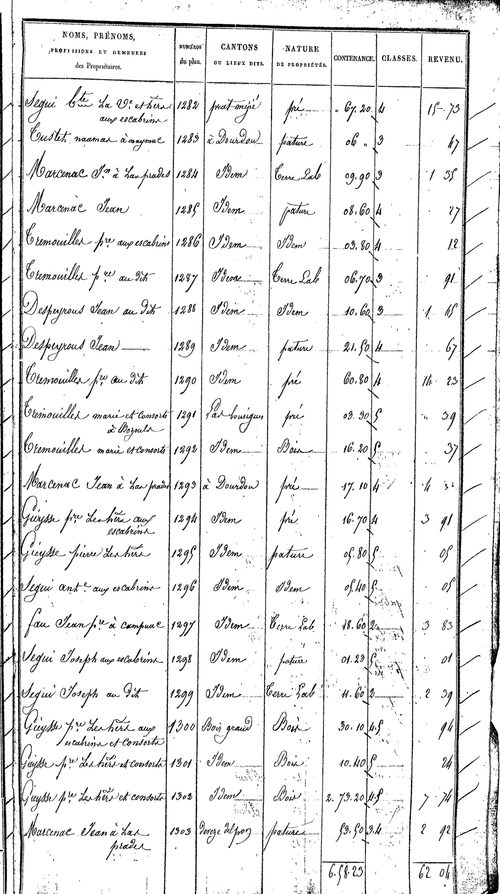 NOMS, PRÉNOMS, PROFESSIONS ET DEMEURES des Propriétaires. NUMÉROS du plan. CANTONS OU LIEUX DITS. NATURE DE PROPRIÉTÉS. CONTENANCE. CLASSES. REVENU.
Segui La Ve et hers 1282 pré 67.20 4 15 73
aux escabrins
à naymac 1283 à Dourdou pature 06 3 47
Marcenac Jn à Las prades 1284 Idem Terre Lab 09.90 3 1 35
Marcenac Jean 1285 Idem pature 08.60 4 27
Tremouilles pre aux escabrins 1286 Idem Idem 03.80 4 12
Tremouilles pre au dit 1287 Idem Terre Lab 06.70 3 91
Despeyrous Jean au dit 1288 Idem Idem 10.60 3 1 45
Despeyrous Jean 1289 Idem pature 21.50 4 67
Tremouilles pre au dit 1290 Idem pré 60.80 4 14 23
Tremouilles marie et consorts 1291 pré 03.30 5 39
à Bozouls
Tremouilles marie et consorts 1292 Idem Bois 16.20 5 37
Marcenac Jean à Las prades 1293 à Dourdou pré 17.10 4 4
Guysse pre Les hers aux 1294 Idem pré 16.70 4 3 91
escabrins
Guysse pierre Les hers 1295 Idem pature 05.80 5 05
Segui ante aux escabrins 1296 Idem Idem 05.40 5 05
fau Jean pre à campuac 1297 Idem Terre Lab 18.60 2 3 83
Segui Joseph aux escabrins 1298 Idem pature 01.23 5 01
Segui Joseph au dit 1299 Idem Terre Lab 11.60 2 2 39
Guysse pre Les hers aux 1300 Bois grand Bois 30.10 4.5 94
escabrins et consorts
Guysse pre Les hers et consorts 1301 Idem Bois 10.40 5 24
Guysse pre Les hers et consorts 1302 Idem Bois 2.73.20 4.5 7 74
Marcenac Jean à Las 1303 pature 53.50 3.4 2 92
prades
6.58.23 62 04